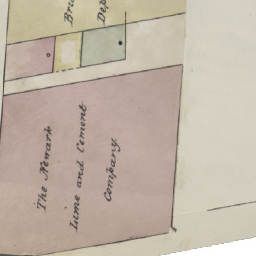 Bri
Dep
The Newark
Lime and Cement
Company